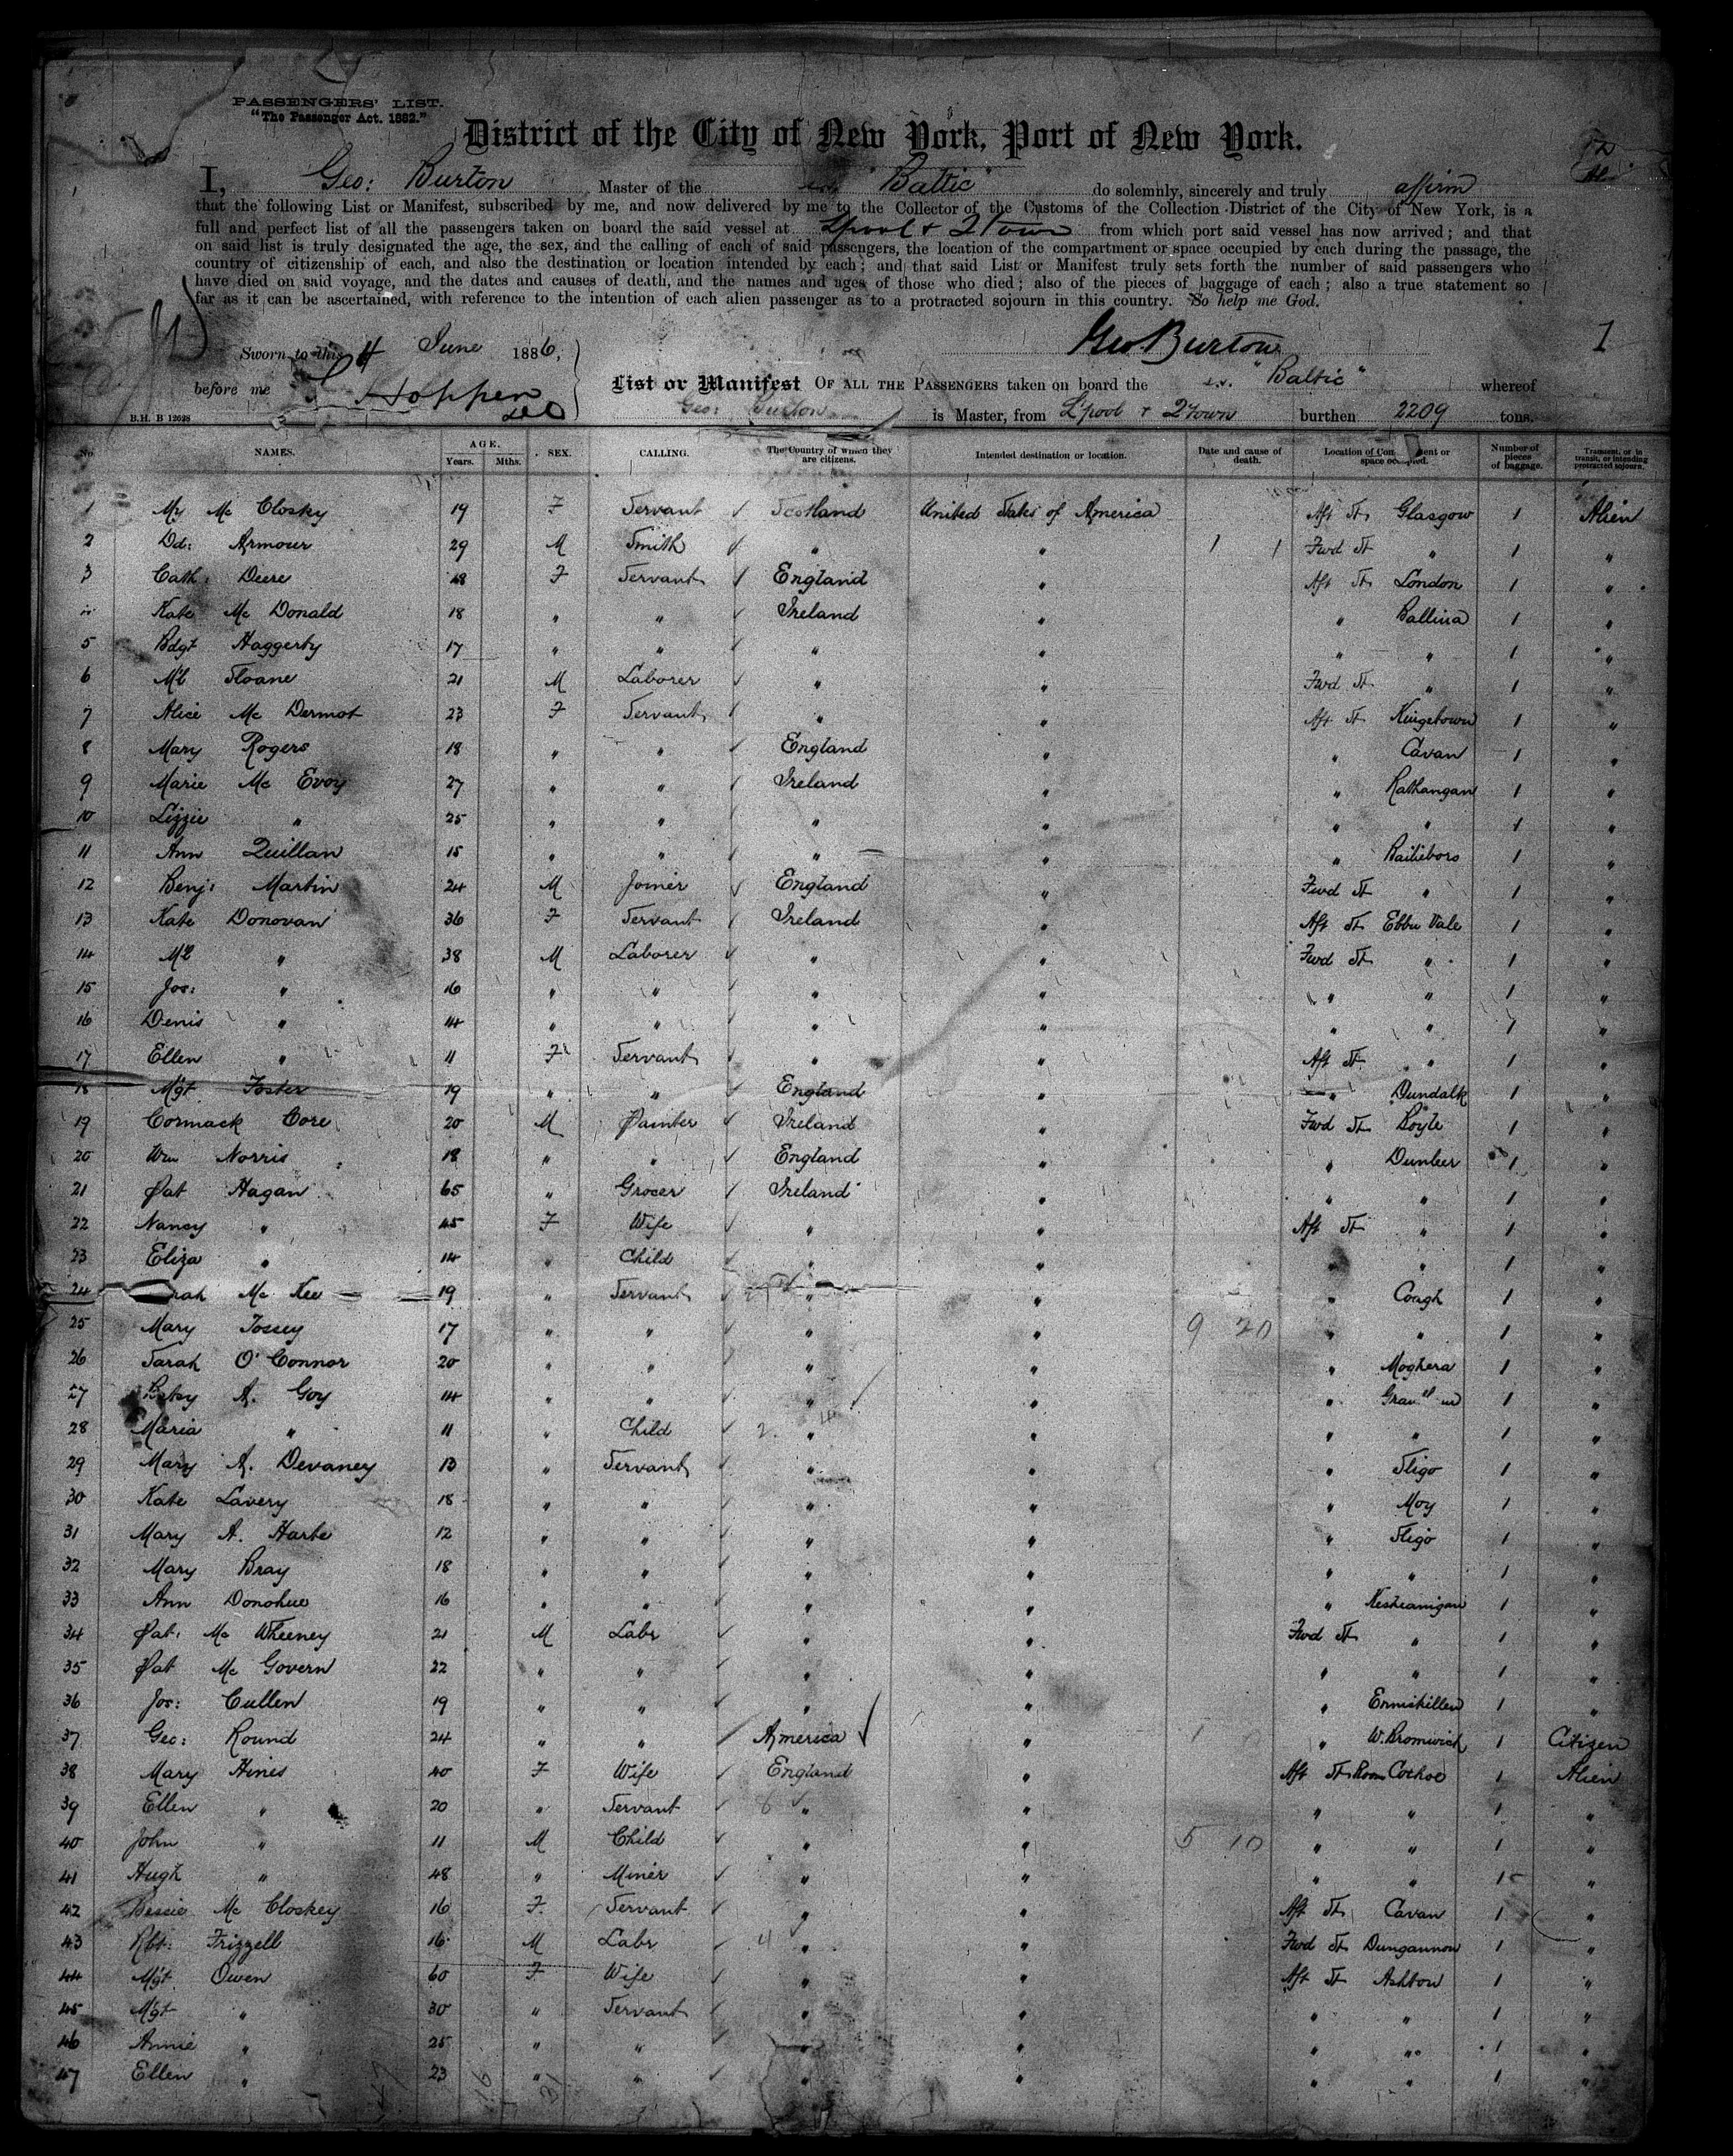 PASSENGERS' LIST.
"The Passenger Act. 1882."
District of the City of New York, Port of New York.
I, Geo: Burton Master of the "Baltic" do solemnly, sincerely and truly affirm
that the following List or Manifest, subscribed by me, and now delivered by me to the Collector of the Customs of the Collection District of the City of New York, is a
full and perfect list of all the passengers taken on board the said vessel at L'pool & 2Town from which port said vessel has now arrived; and that
on said list is truly designated the age, the sex, and the calling of each of said passengers, the location of the compartment or space occupied by each during the passage, the
country of citizenship of each, and also the destination or location intended by each; and that said List or Manifest truly sets forth the number of said passengers who
have died on said voyage, and the dates and causes of death, and the names and ages of those who died; also of the pieces of baggage of each; also a true statement so
far as it can be ascertained, with reference to the intention of each alien passenger as to a protracted sojourn in this country. So help me God.
Sworn to this 4 June 1886,
Geo Burton
1
before me Hoppen
List or Manifest OF ALL THE PASSENGERS taken on board the s.s. "Baltic" whereof
B.H. B 12628
Geo: Burton is Master, from L'pool & 2Town burthen 2209 tons.
No. NAMES. AGE. Years. Mths. SEX. CALLING. The Country of which they are citizens. Intended destination or location. Date and cause of death. Location of Compartment or space occupied. Number of pieces of baggage. Transient, or in transit, or intending protracted sojourn.
1 My Mc Closky 19 F Servant Scotland United States of America Aft St Glasgow 1 Alien
2 Dd: Armour 29 M Smith " " Fwd St " 1 "
3 Cath: Deere 18 F Servant England " Aft St London 1 "
4 Kate Mc Donald 18 " " Ireland " " Ballina 1 "
5 Bdgt Haggerty 17 " " " " " " 1 "
6 Ml Sloane 21 M Laborer " " Fwd St " 1 "
7 Alice Mc Dermot 23 F Servant " " Aft St Kingstown 1 "
8 Mary Rogers 18 " " England " " Cavan 1 "
9 Marie Mc Evoy 27 " " Ireland " " Rathangan 1 "
10 Lizzie " 25 " " " " " " 1 "
11 Ann Quillan 15 " " " " " Bailiebors 1 "
12 Benj: Martin 24 M Joiner England " Fwd St " 1 "
13 Kate Donovan 36 F Servant Ireland " Aft St Ebbw Vale 1 "
14 Ml " 38 M Laborer " " Fwd St " 1 "
15 Jos: " 16 " " " " " " 1 "
16 Denis " 14 " " " " " " 1 "
17 Ellen " 11 F Servant " " Aft St " 1 "
18 Mgt Foster 19 " " England " " Dundalk 1 "
19 Cormack Core 20 M Painter Ireland " Fwd St Boyle 1 "
20 Wm Norris 18 " " England " " Dunleer 1 "
21 Pat Hagan 65 " Grocer Ireland " " " 1 "
22 Nancy " 45 F Wife " " Aft St " 1 "
23 Eliza " 14 " Child " " " " 1 "
24 rah Mc Kee 19 " Servant " " " Coagh 1 "
25 Mary Tossey 17 " " " " 9 20 " " 1 "
26 Sarah O'Connor 20 " " " " " Moghera 1 "
27 Betsy A. Goy 14 " " " " " 1 "
28 Maria " 11 " Child " " " " 1 "
29 Mary A. Devaney 13 " Servant " " " Sligo 1 "
30 Kate Lavery 18 " " " " " Moy 1 "
31 Mary A. Harte 12 " " " " " Sligo 1 "
32 Mary Bray 18 " " " " " " 1 "
33 Ann Donohue 16 " " " " " 1 "
34 Pat: Mc Wheeney 21 M Labr " " Fwd St " 1 "
35 Pat Mc Govern 22 " " " " " " 1 "
36 Jos: Cullen 19 " " " " " Enniskillen 1 "
37 Geo: Round 24 " " America " " W. Bromwich 1 Citizen
38 Mary Hines 40 F Wife England " Aft St Room 1 Alien
39 Ellen " 20 " Servant " " " " 1 "
40 John " 11 M Child " " 5 10 " " 1 "
41 Hugh " 48 " Miner " " " " 1 "
42 Bessie Mc Closkey 16 F Servant " " Aft St Cavan 1 "
43 Rbt: Frizzell 16 M Labr " " Fwd St Dungannon 1 "
44 Mgt Owen 60 F Wife " " Aft St Ashton 1 "
45 Mgt " 30 " Servant " " " " 1 "
46 Annie " 25 " " " " " " 1 "
47 Ellen " 23 " " " " " " 1 "
47 16 31